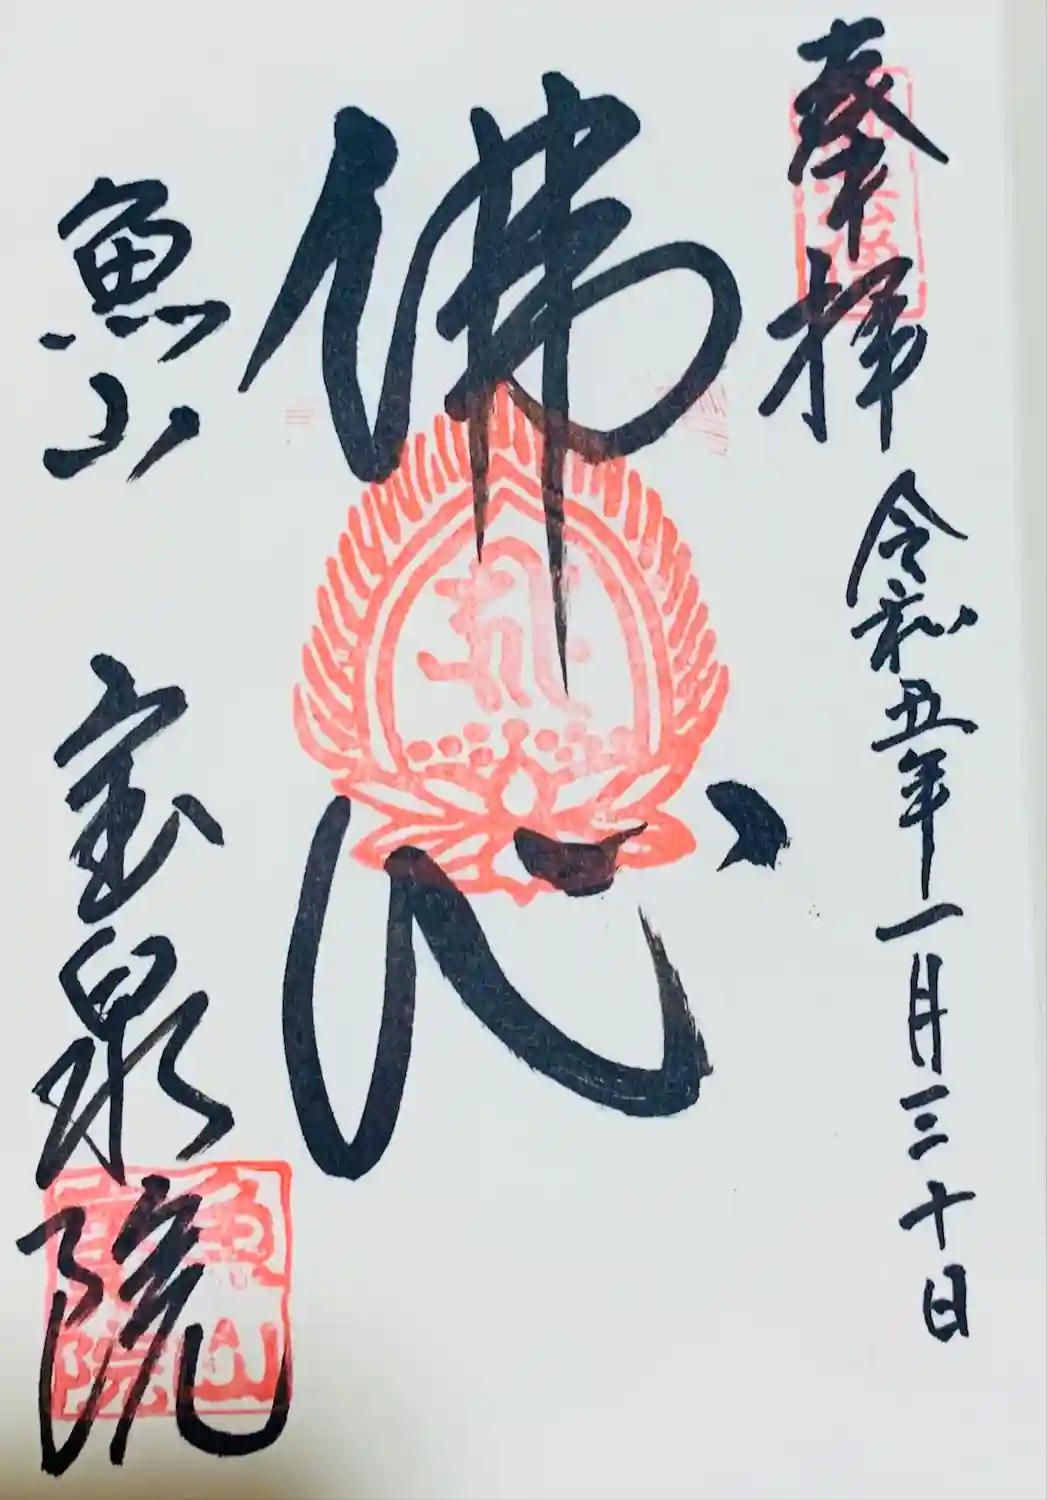 奉拝
令和五年一月三十日
佛心
魚山
宝泉院